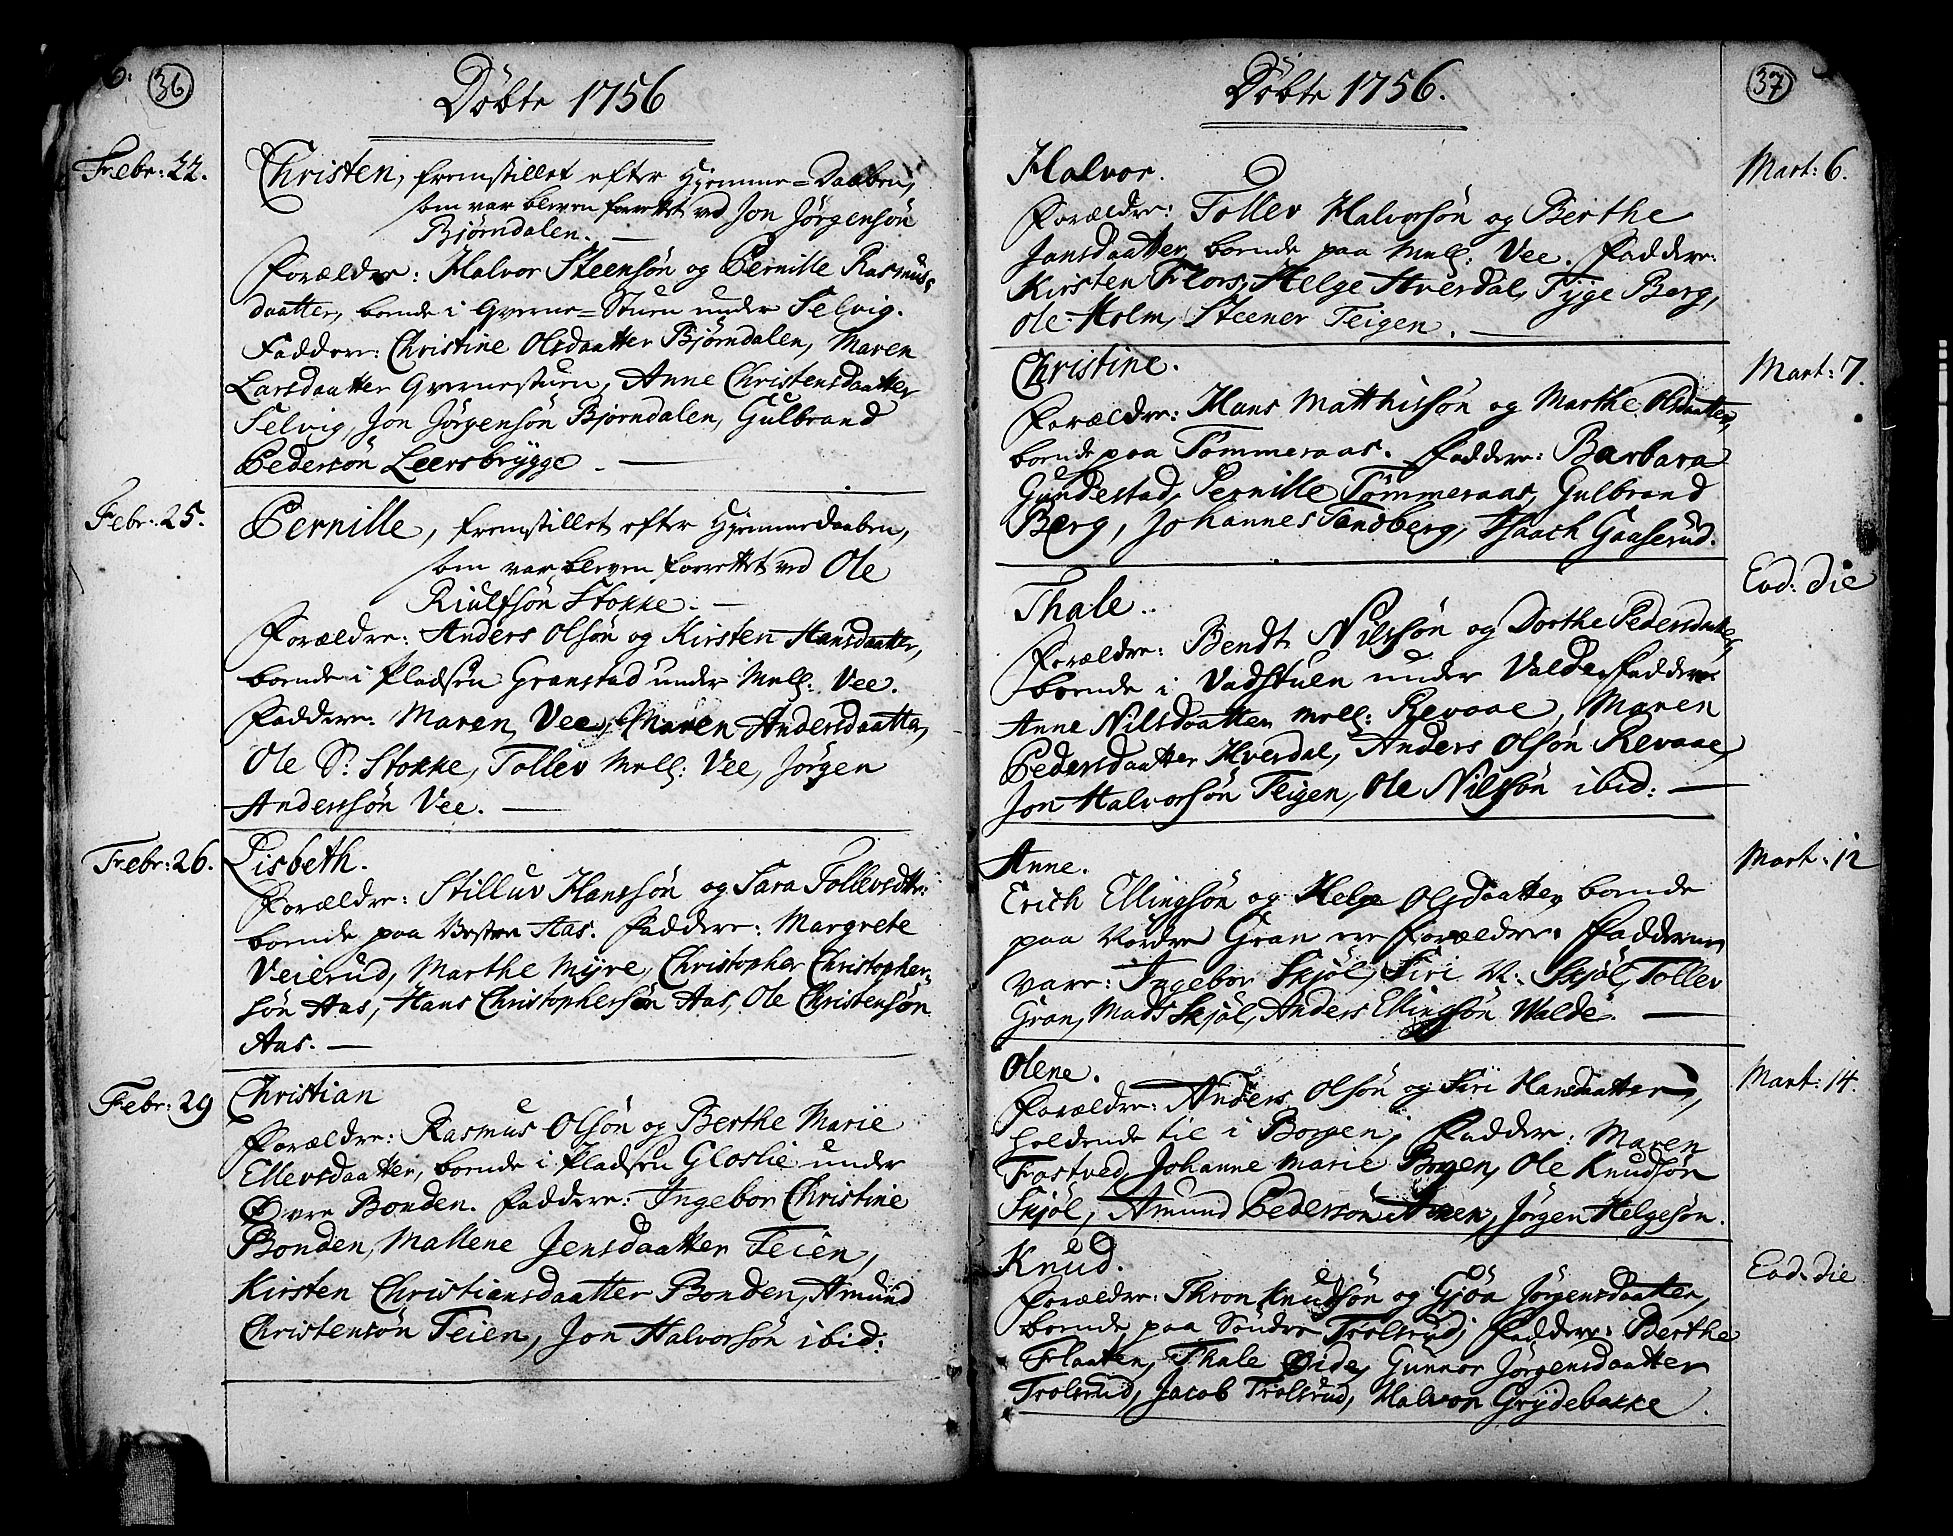 36
Döbte 1756
Febr: 22.
Christen, fremstillet efter Hjemme=Daaben,
som var bleven forrettet ved Jon Jörgensön
Björndalen. —
Forældre: Halvor Steensön og Pernille Rasmus-
daatter, boende i Qverne=Stuen under Selvig.
Faddere: Christine Olsdaatter Björndalen, Maren
Larsdaatter Qvernestuen, Anne Christensdaatter
Selvig, Jon Jörgensön Björndalen, Gulbrand
Pedersön Leersbrygge. —
Febr: 25.
Pernille, fremstillet efter Hjemmedaaben,
som var bleven forrettet ved Ole
Riulfsön Stokke. —
Forældre: Anders Olsön og Kirsten Hansdaatter,
boende i Pladsen Granstad under Mell: Vee.
Faddere: Maren Vee, Maren Andersdaatter,
Ole S. Stokke, Tollev Mell: Vee, Jörgen
Anderssön Vee. —
Febr: 26.
Lisbeth.
Forældre: Stilluv Hanssön og Sara Tollevsdtr:
boende paa Vestre Aas. Faddere: Margrete
Veierud, Marthe Myre, Christopher Christopher-
sön Aas, Hans Christophersön Aas, Ole Christensön
Aas. —
Febr: 29
Christian
Forældre: Rasmus Olsön og Berthe Marie
Ellevsdaatter, boende i Pladsen Gloslie under
Øvre Bonden. Faddere: Ingebor Christine
Bonden, Mallene Jensdaatter Teien,
Kirsten Christiansdaatter Bonden, Amund
Christensön Teien, Jon Halvorsön ibid:
37
Döbte 1756.
Mart: 6.
Halvor.
Forældre: Tollev Halvorsön og Berthe
Jansdaatter, boende paa Mell: Vee. Faddere:
Kirsten Flors, Helge Hverdal, Tyge Berg,
Ole Holm, Steener Teigen. —
Mart: 7.
Christine.
Forældre: Hans Matthissön og Marthe Olsdaatter,
boende paa Tömmeraas. Faddere: Barbara
Gundestad, Pernille Tömmeraas, Gulbrand
Berg, Johannes Sandberg, Isaach Gaaserud.
Eod: die
Thale.
Forældre: Bendt Nilssön og Dorthe Pedersdaatter,
boende i Vadstuen under Valde. Faddere:
Anne Nilsdaatter Mell: Revaae, Maren
Pedersdaatter Hverdal, Anders Olsön Revaae,
Jon Halvorsön Teigen, Ole Nilssön ibid: —
Mart: 12
Anne.
Erich Ellingsön og Helge Olsdaatter, boende
paa Nordre Gran ere Forældre. Fadderne
vare: Ingebor Skjöl, Siri N: Skjöl, Tollev
Gran, Mads Skjöl, Anders Ellingsön Walde. —
Mart: 14.
Olene.
Forældre: Anders Olsön og Siri Hansdaatter,
holdende til i Borgen, Faddere: Maren
Trostved, Johanne Marie Borgen, Ole Knudsön
Skjöl, Amund Pedersön, Jörgen Helgesön.
Eod: die
Knud.
Forældre: Thron Knudsön og Gjöa Jörgensdaatter,
boende paa Söndre Trolsrud; Faddere: Berthe
Flaaten, Thale Øide, Gunnor Jörgensdaatter
Trolsrud, Jacob Trolsrud, Halvor Grydebakke.